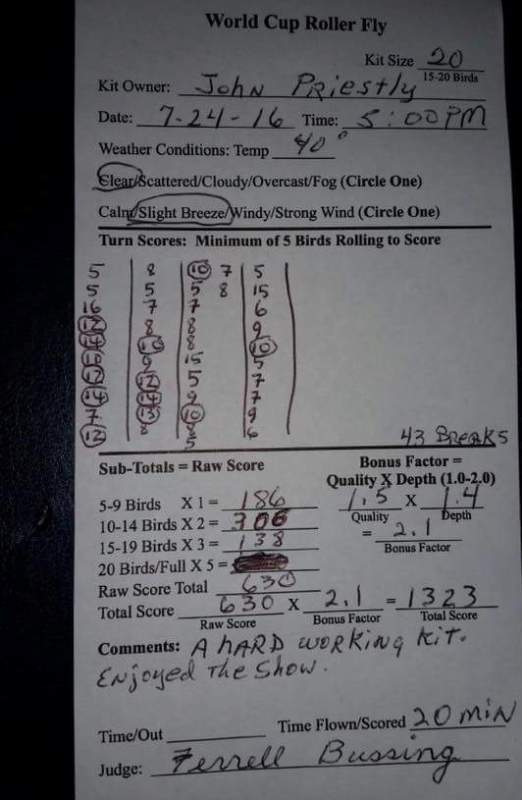 World Cup Roller Fly
Kit Size 20
15-20 Birds
Kit Owner: John Priestly
Date: 7-24-16 Time: 5:00 PM
Weather Conditions: Temp 40°
Clear/Scattered/Cloudy/Overcast/Fog (Circle One)
Calm/Slight Breeze/Windy/Strong Wind (Circle One)
Turn Scores: Minimum of 5 Birds Rolling to Score
5 8 10 7 5
5 5 5 8 15
16 7 7 6
8 8 9
8 10
9 15 5
12 12 5 7
14 14 9 7
7 13 10 9
12 8 5 6
43 Breaks
Sub-Totals = Raw Score
Bonus Factor =
Quality X Depth (1.0-2.0)
5-9 Birds X 1 = 186
1.5 X 1.4
Quality Depth
10-14 Birds X 2 = 306
= 2.1
Bonus Factor
15-19 Birds X 3 = 138
20 Birds/Full X 5 =
Raw Score Total 630
Total Score 630 X 2.1 = 1323
Raw Score Bonus Factor Total Score
Comments: A hard working kit.
Enjoyed the show.
Time/Out Time Flown/Scored 20 min
Judge: Ferrell Bussing